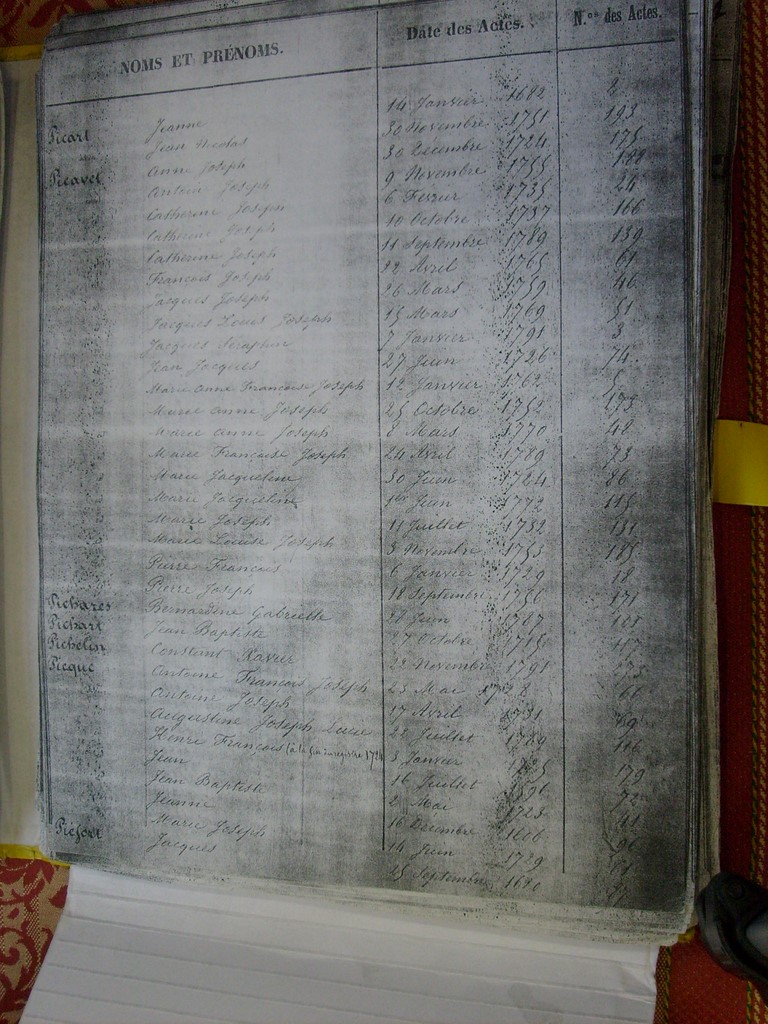 NOMS ET PRÉNOMS. Date des Actes. N.os des Actes.
Picart Jeanne 14 Janvier 1682 8
Jean Nicolas 30 Novembre 1751 193
Picavet Anne Joseph 30 Decembre 1724 175
Antoine Joseph 9 Novembre 1755 188
Catherine Joseph 6 Fevrier 1735 24
Catherine Joseph 10 Octobre 1737 166
Catherine Joseph 11 Septembre 1789 139
François Joseph 22 Avril 1765 61
Jacques Joseph 26 Mars 1759 46
Jacques Louis Joseph 15 Mars 1769 51
Jacques Seraphin 7 Janvier 1791 3
Jean Jacques 27 Juin 1726 74
Marie Anne Francoise Joseph 12 Janvier 1762 5
Marie Anne Joseph 25 Octobre 1752 173
Marie Anne Joseph 8 Mars 1770 48
Marie Francoise Joseph 24 Avril 1789 73
Marie Jacqueline 30 Juin 1724 86
Marie Jacqueline 1er Juin 1772 115
Marie Joseph 11 Juillet 1732 131
Marie Louise Joseph 3 Novembre 1753 185
Pierre Francois 6 Janvier 1729 18
Pierre Joseph 18 Septembre 1750 171
Pichares Bernardine Gabrielle 28 Juin 1787
Pichart Jean Baptiste 27 Octobre 1715 117
Pichelin Constant Xavier 22 Novembre 1791
Picque Antoine Francois Joseph 23 Mai 1728
Antoine Joseph 17 Avril 1731 69
Augustine Joseph Lucie 22 Juillet 1789 116
Henri François 3 Janvier 1725 179
Jean 16 Juillet 1696 72
Jean Baptiste 2 Mai 1723 41
Jeanne 16 Decembre 96
Marie Joseph 14 Juin 1739
Piefort Jacques 25 Septembre 1690